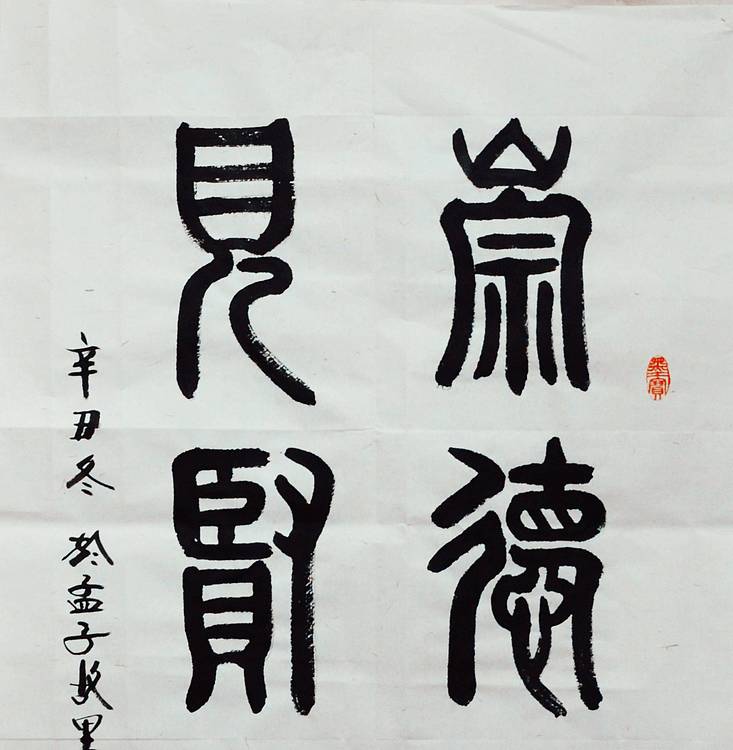 崇德
見賢
辛丑冬 於孟子故里
墨寶